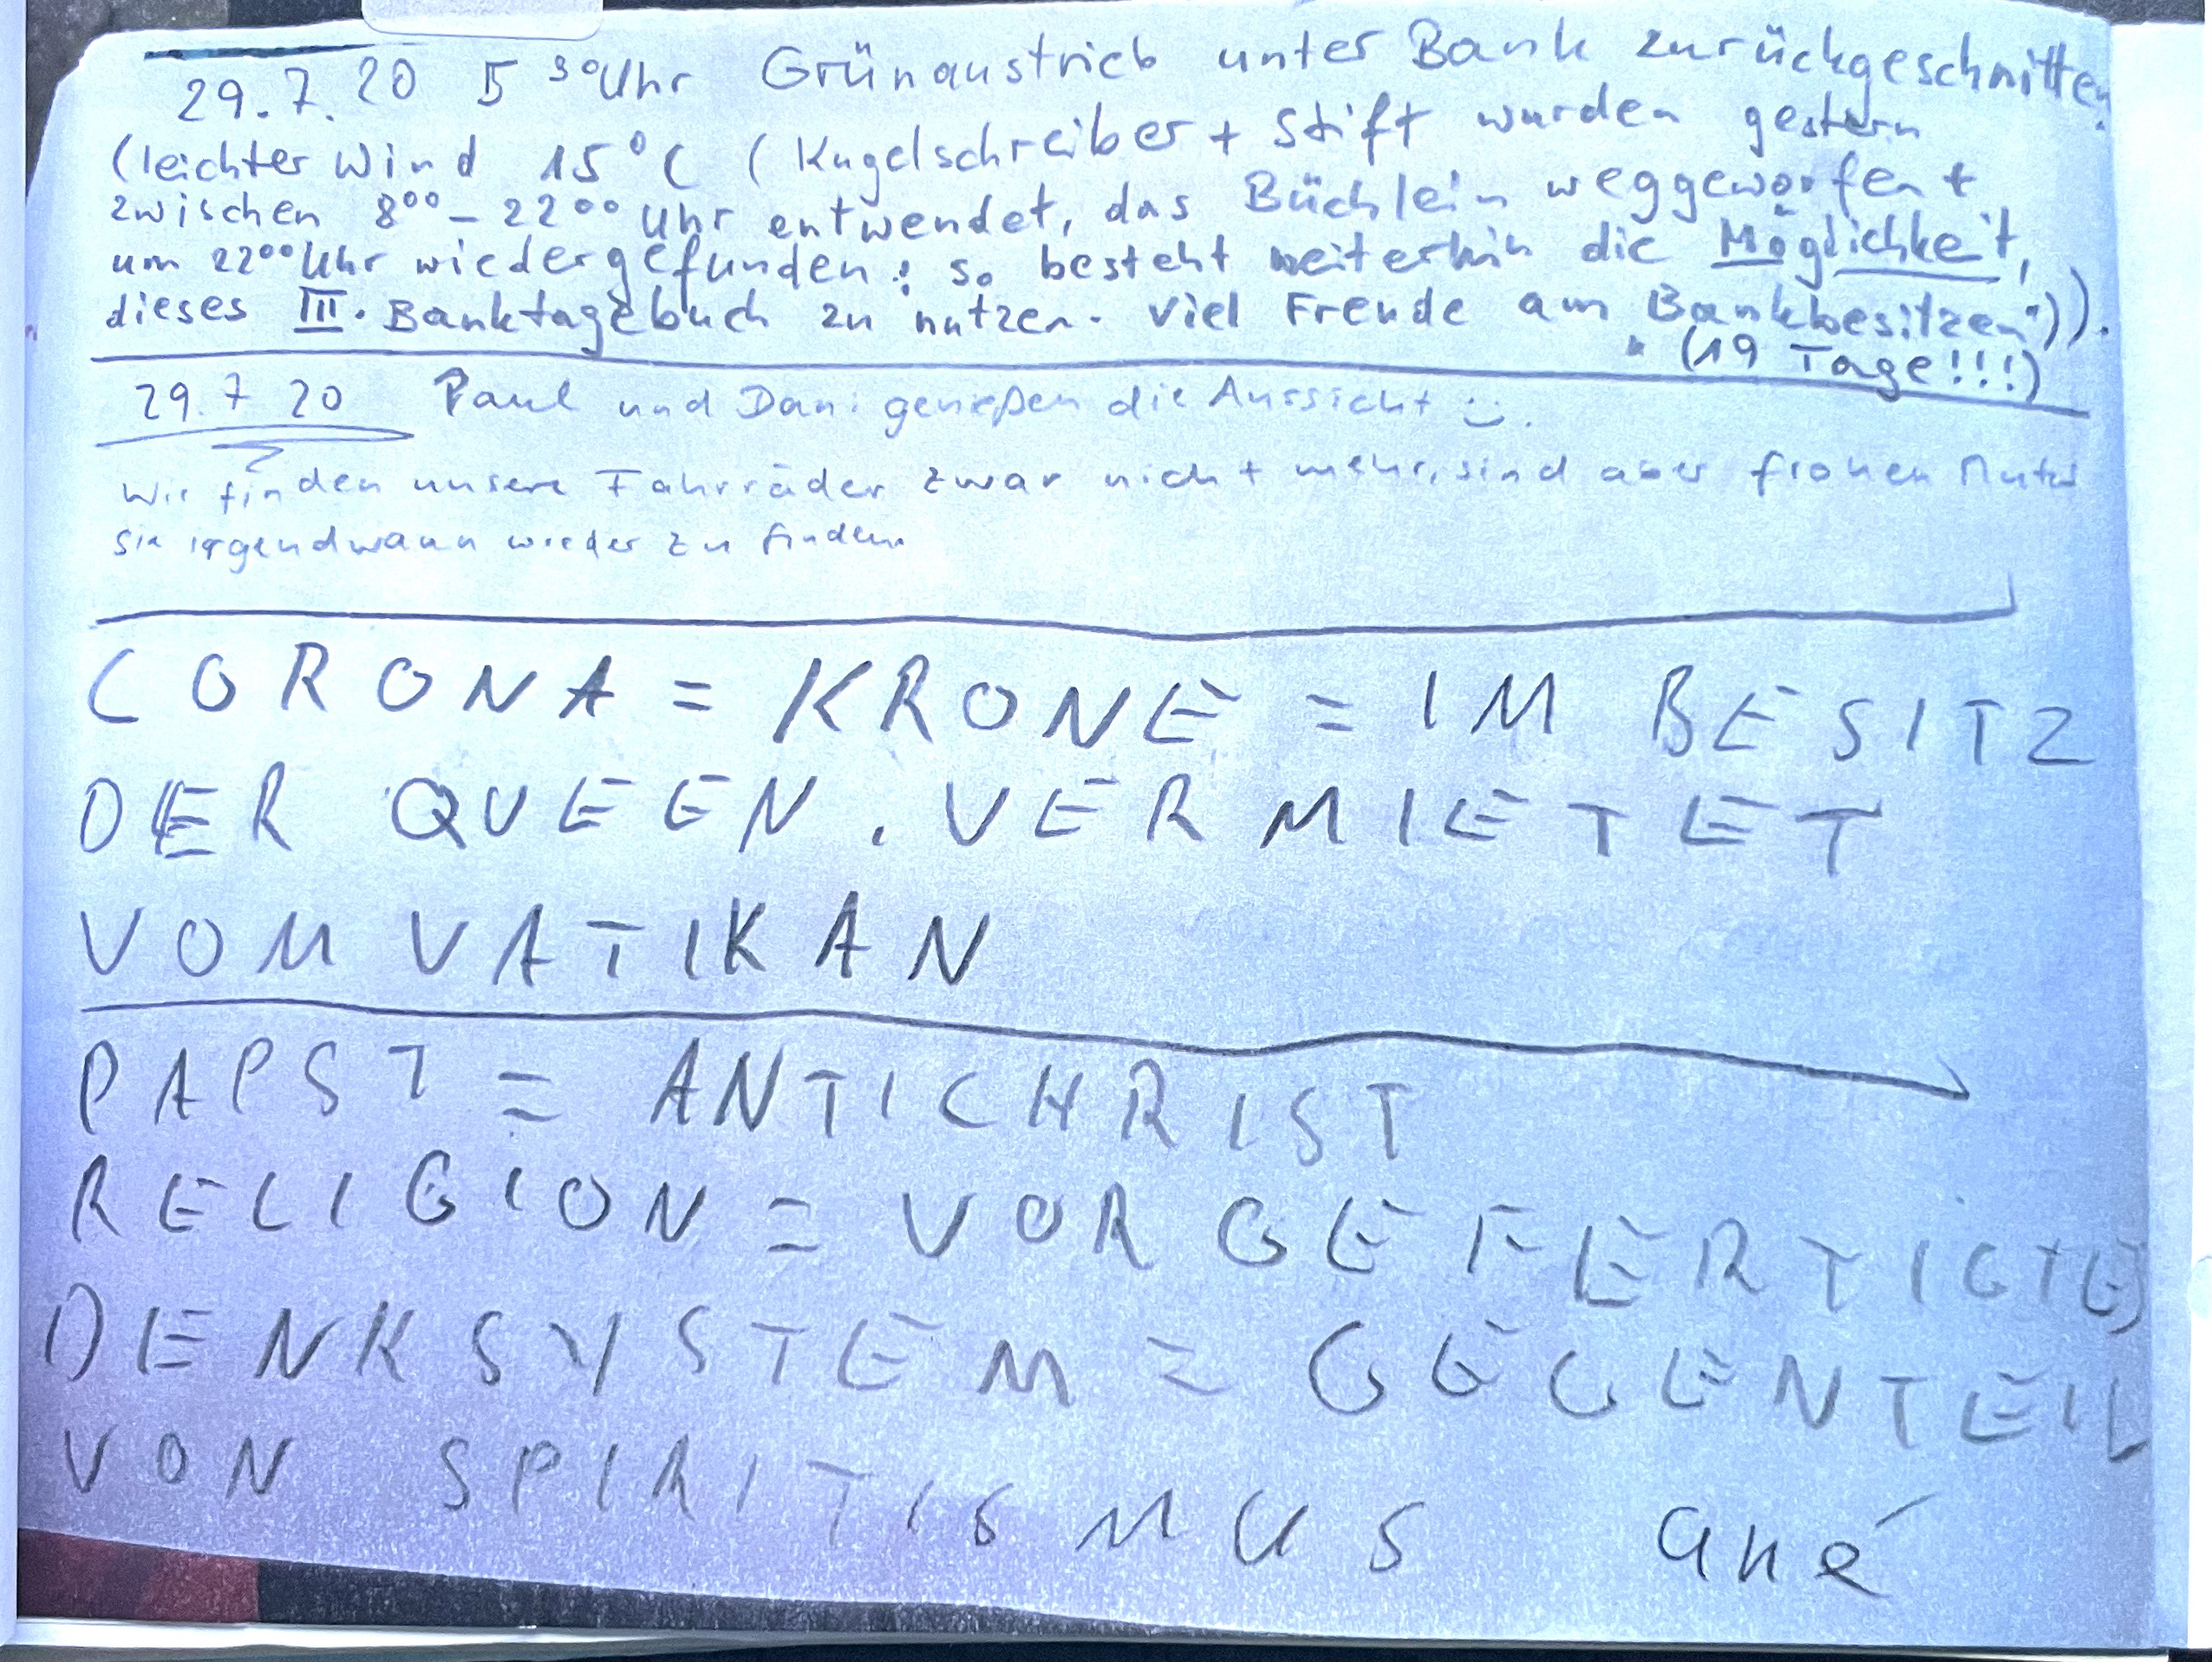 29.7.20 5 30 Uhr Grünaustrieb unter Bank zurückgeschnitten.
(leichter Wind 15°C (Kugelschreiber + Stift wurden gestern
zwischen 8°° - 22°° Uhr entwendet, das Büchlein weggeworfen +
um 22°° Uhr wiedergefunden: so besteht weiterhin die Möglichkeit,
dieses III. Banktagebuch zu nutzen. Viel Freude am Bankbesitzen*)).
* (19 Tage!!!)
29.7 20 Paul und Dani genießen die Aussicht ☺.
Wir finden unsere Fahrräder zwar nicht mehr, sind aber frohen Mutes
sie irgendwann wieder zu finden.
CORONA = KRONE = IM BESITZ
DER QUEEN. VERMIETET
VOM VATIKAN
PAPST = ANTICHRIST
RELIGION = VORGEFERTIGTES
DENKSYSTEM = GEGENTEIL
VON SPIRITISMUS